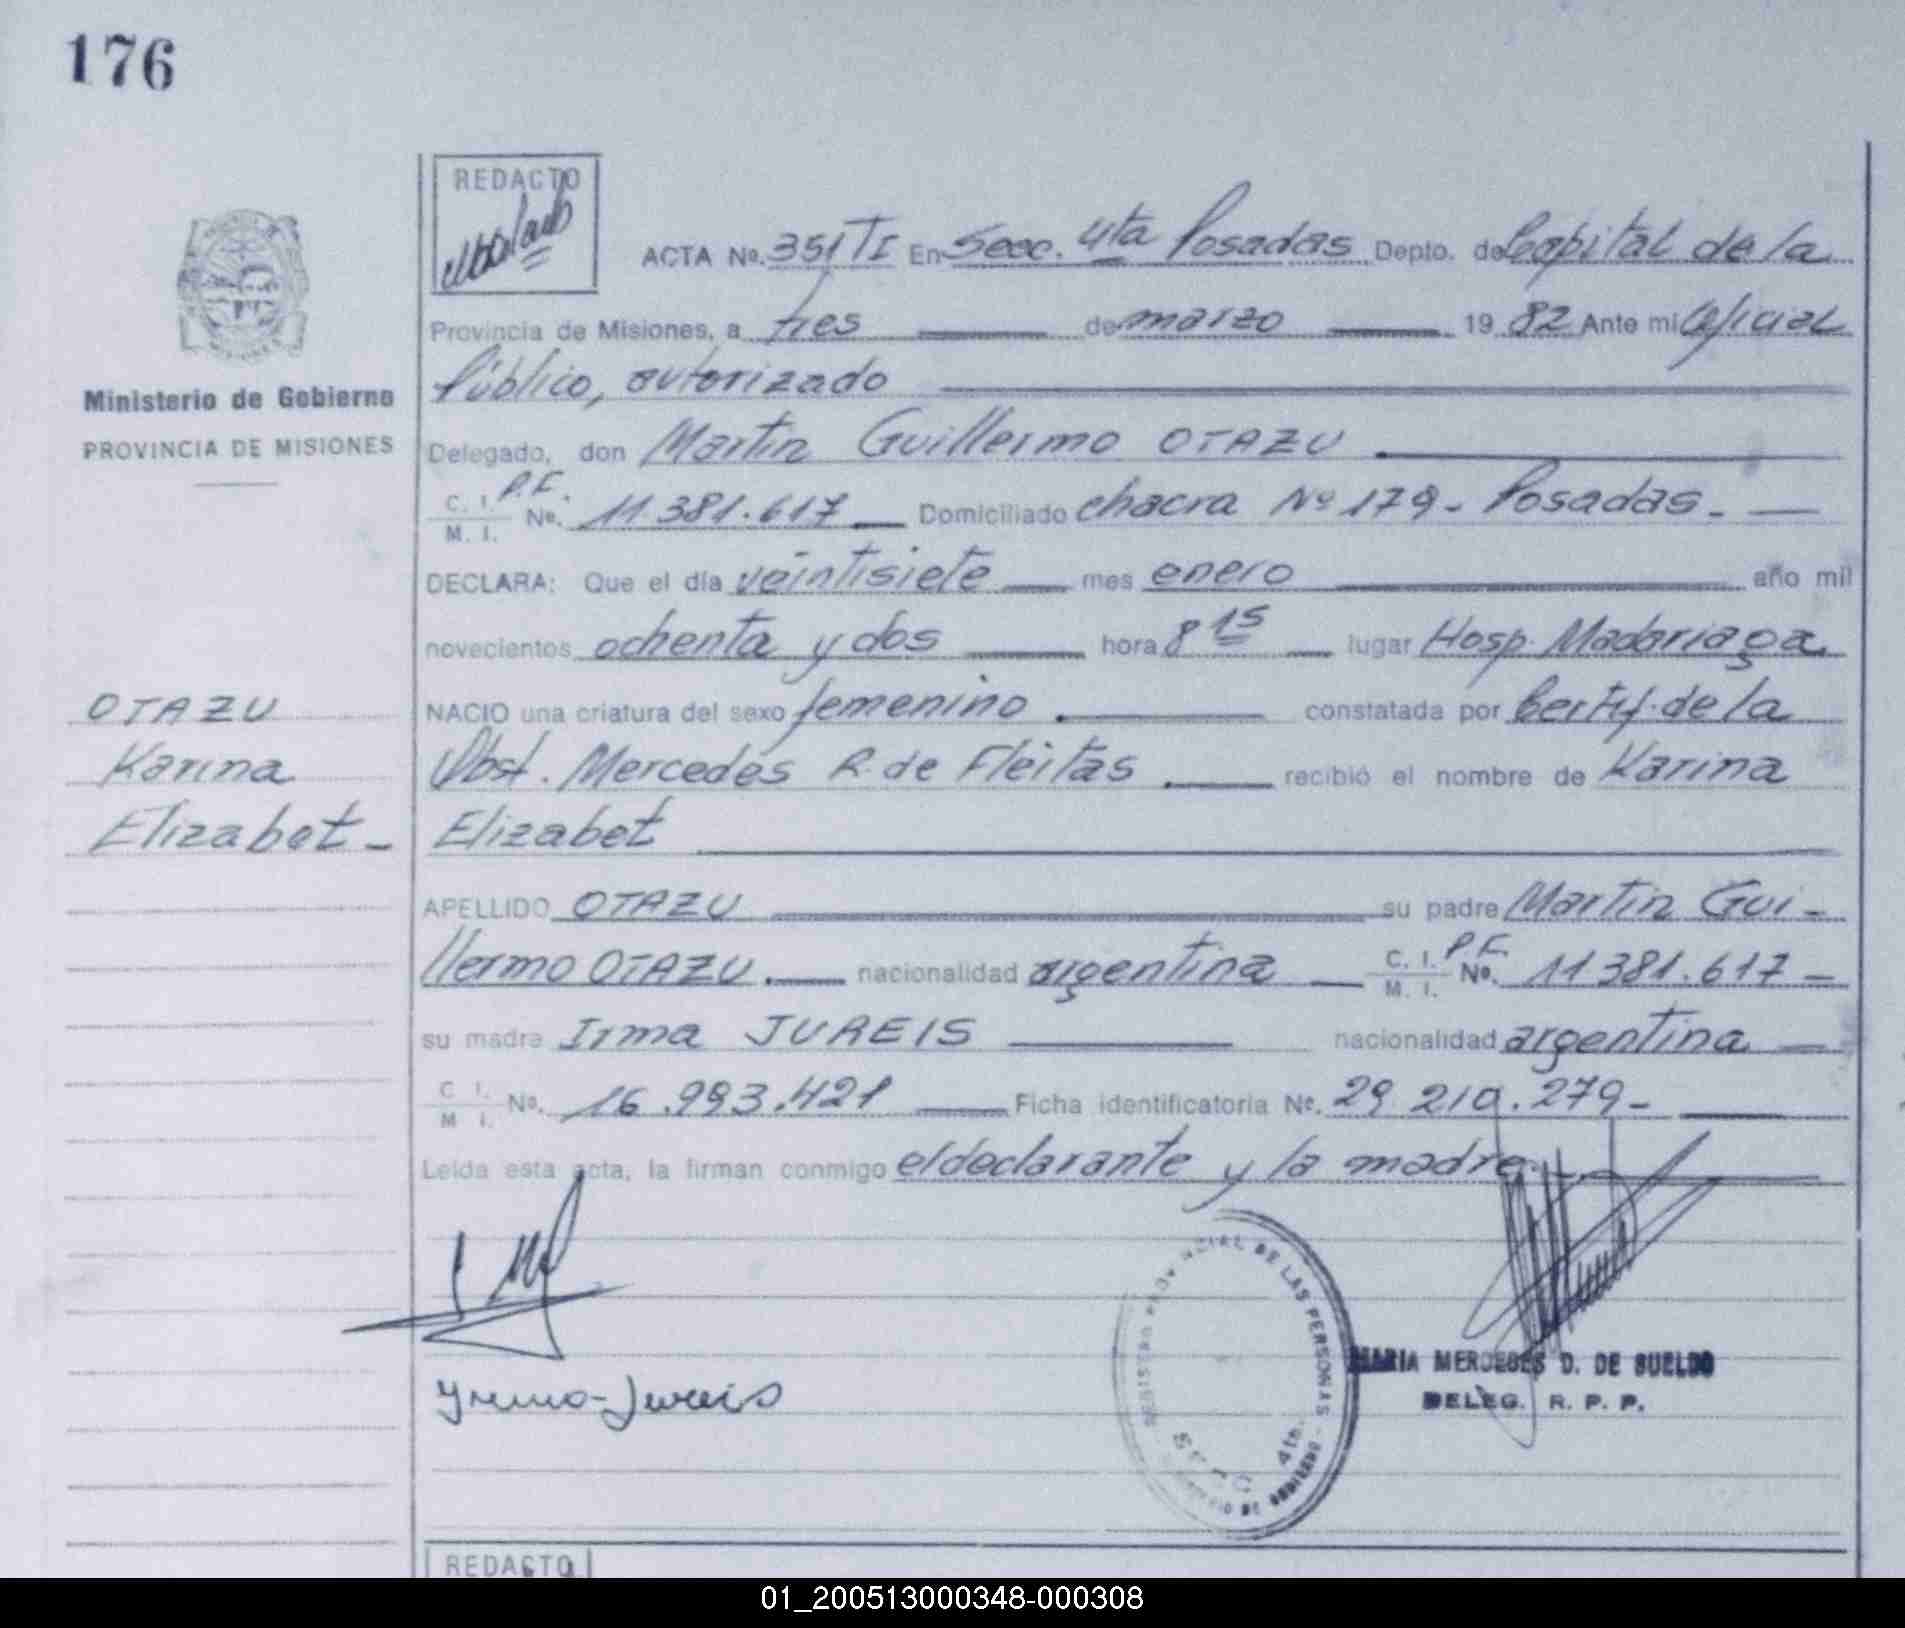 176
REDACTO
ACTA No. 351 TI En Secc. 4ta Posadas Depto. de Capital de la
Provincia de Misiones, a tres de marzo 1982 Ante mi Oficial
Público, autorizado
Ministerio de Gobierno
PROVINCIA DE MISIONES
Delegado, don Martin Guillermo OTAZU
C. I. P.F.
M. I. No. 11.381.617 Domiciliado chacra Nº 179 - Posadas. -
DECLARA: Que el día veintisiete mes enero año mil
novecientos ochenta y dos hora 8 15 lugar Hosp. Madariaga
OTAZU
Karina
Elizabet -
NACIO una criatura del sexo femenino constatada por Certif. de la
Obst. Mercedes R. de Fleitas recibió el nombre de Karina
Elizabet
APELLIDO OTAZU su padre Martin Gui-
llermo OTAZU. nacionalidad argentina C. I. P.F.
M. I. No. 11 381.617 -
su madre Irma JUREIS nacionalidad argentina
C. I.
M. I. No. 16.993.421 Ficha identificatoria No. 29 210.279 -
Leida esta acta, la firman conmigo el declarante y la madre.
REGISTRO PROVINCIAL DE LAS PERSONAS
SECC 4ta.
MARIA MERCEDES D. DE SUELDO
DELEG. R. P. P.
Jureis
REDACTO
01_200513000348-000308